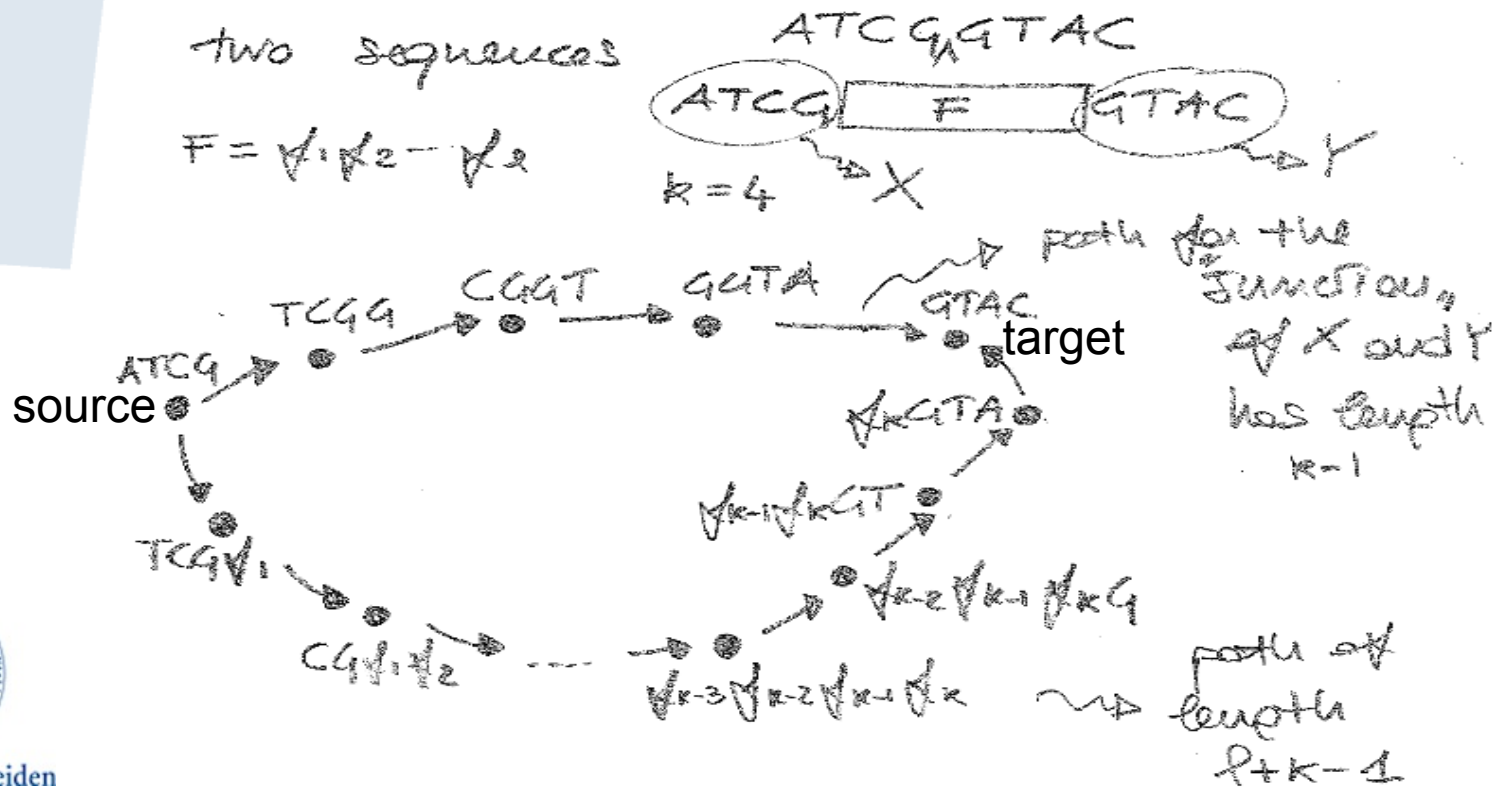 two sequences
ATCG^GTAC
ATCG F GTAC
F = f₁f₂--fℓ
k = 4
X
Y
path for the
"junction"
of X and Y
has length
k-1
TCGG
CGGT
GGTA
GTAC
target
ATCG
source
fₖGTA
fₖ₋₁fₖGT
fₖ₋₂fₖ₋₁fₖG
TCGf₁
CGf₁f₂
----
fₖ₋₃fₖ₋₂fₖ₋₁fₖ
path of
length
ℓ+k-1
eiden